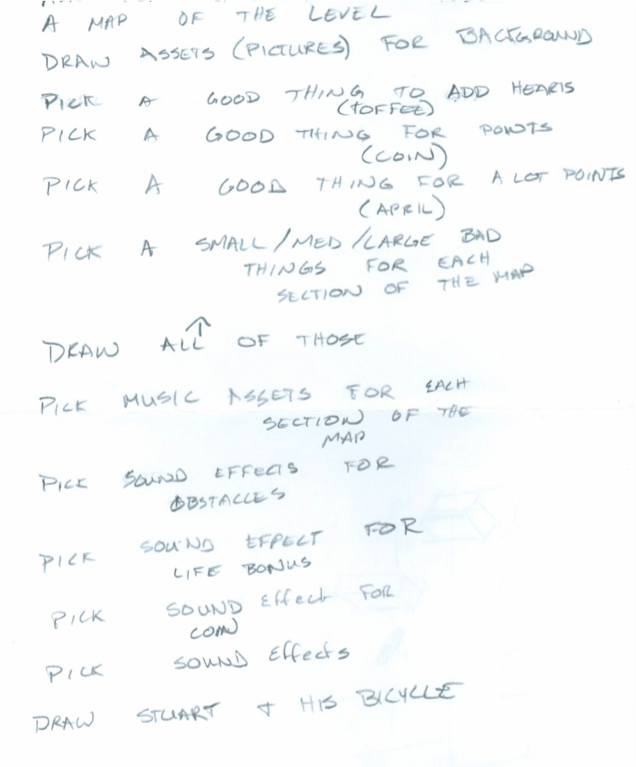 A MAP OF THE LEVEL
DRAW ASSETS (PICTURES) FOR BACKGROUND
PICK A GOOD THING TO ADD HEARTS
(TOFFEE)
PICK A GOOD THING FOR POINTS
(COIN)
PICK A GOOD THING FOR A LOT POINTS
(APRIL)
PICK A SMALL/MED/LARGE BAD
THINGS FOR EACH
SECTION OF THE MAP
DRAW ALL OF THOSE
PICK MUSIC ASSETS FOR EACH
SECTION OF THE
MAP
PICK SOUND EFFECTS FOR
OBSTACLES
PICK SOUND EFFECT FOR
LIFE BONUS
PICK SOUND Effect FOR
COIN
PICK SOUND Effects
DRAW STUART + HIS BICYCLE